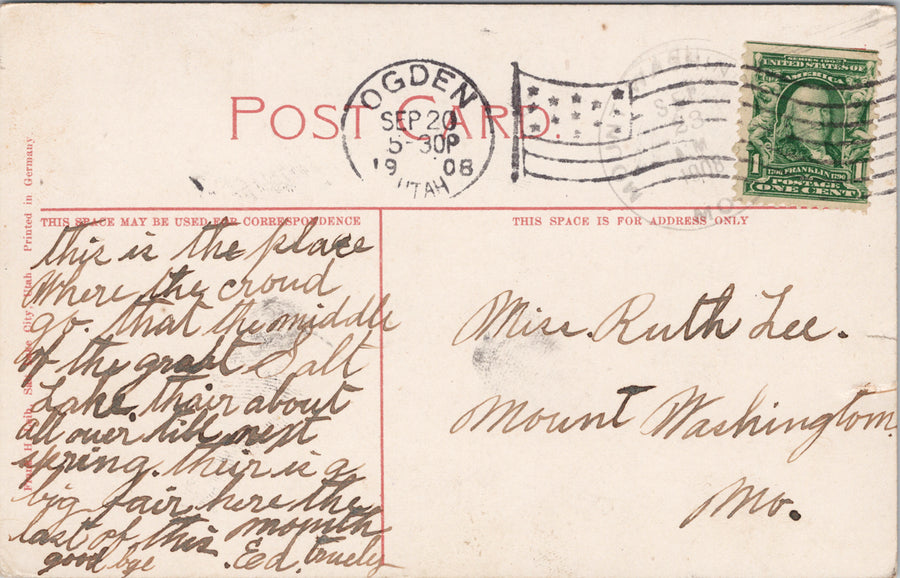 OGDEN
SEP 20
5-30P
19 08
UTAH
POST CARD.
SERIES 1902
UNITED STATES OF
AMERICA
1
1
1706 FRANKLIN 1790
POSTAGE
ONE CENT
23
AM
1908
MO.
THIS SPACE MAY BE USED FOR CORRESPONDENCE
THIS SPACE IS FOR ADDRESS ONLY
Printed in Germany
City, Utah
this is the place
Where the croud
go. that the middle
of the great Salt
Lake. thair about
all over till next
spring. their is a
big fair here the
last of this mounth
good bye Ed. truely
Miss. Ruth Lee.
Mount Washington
Mo.